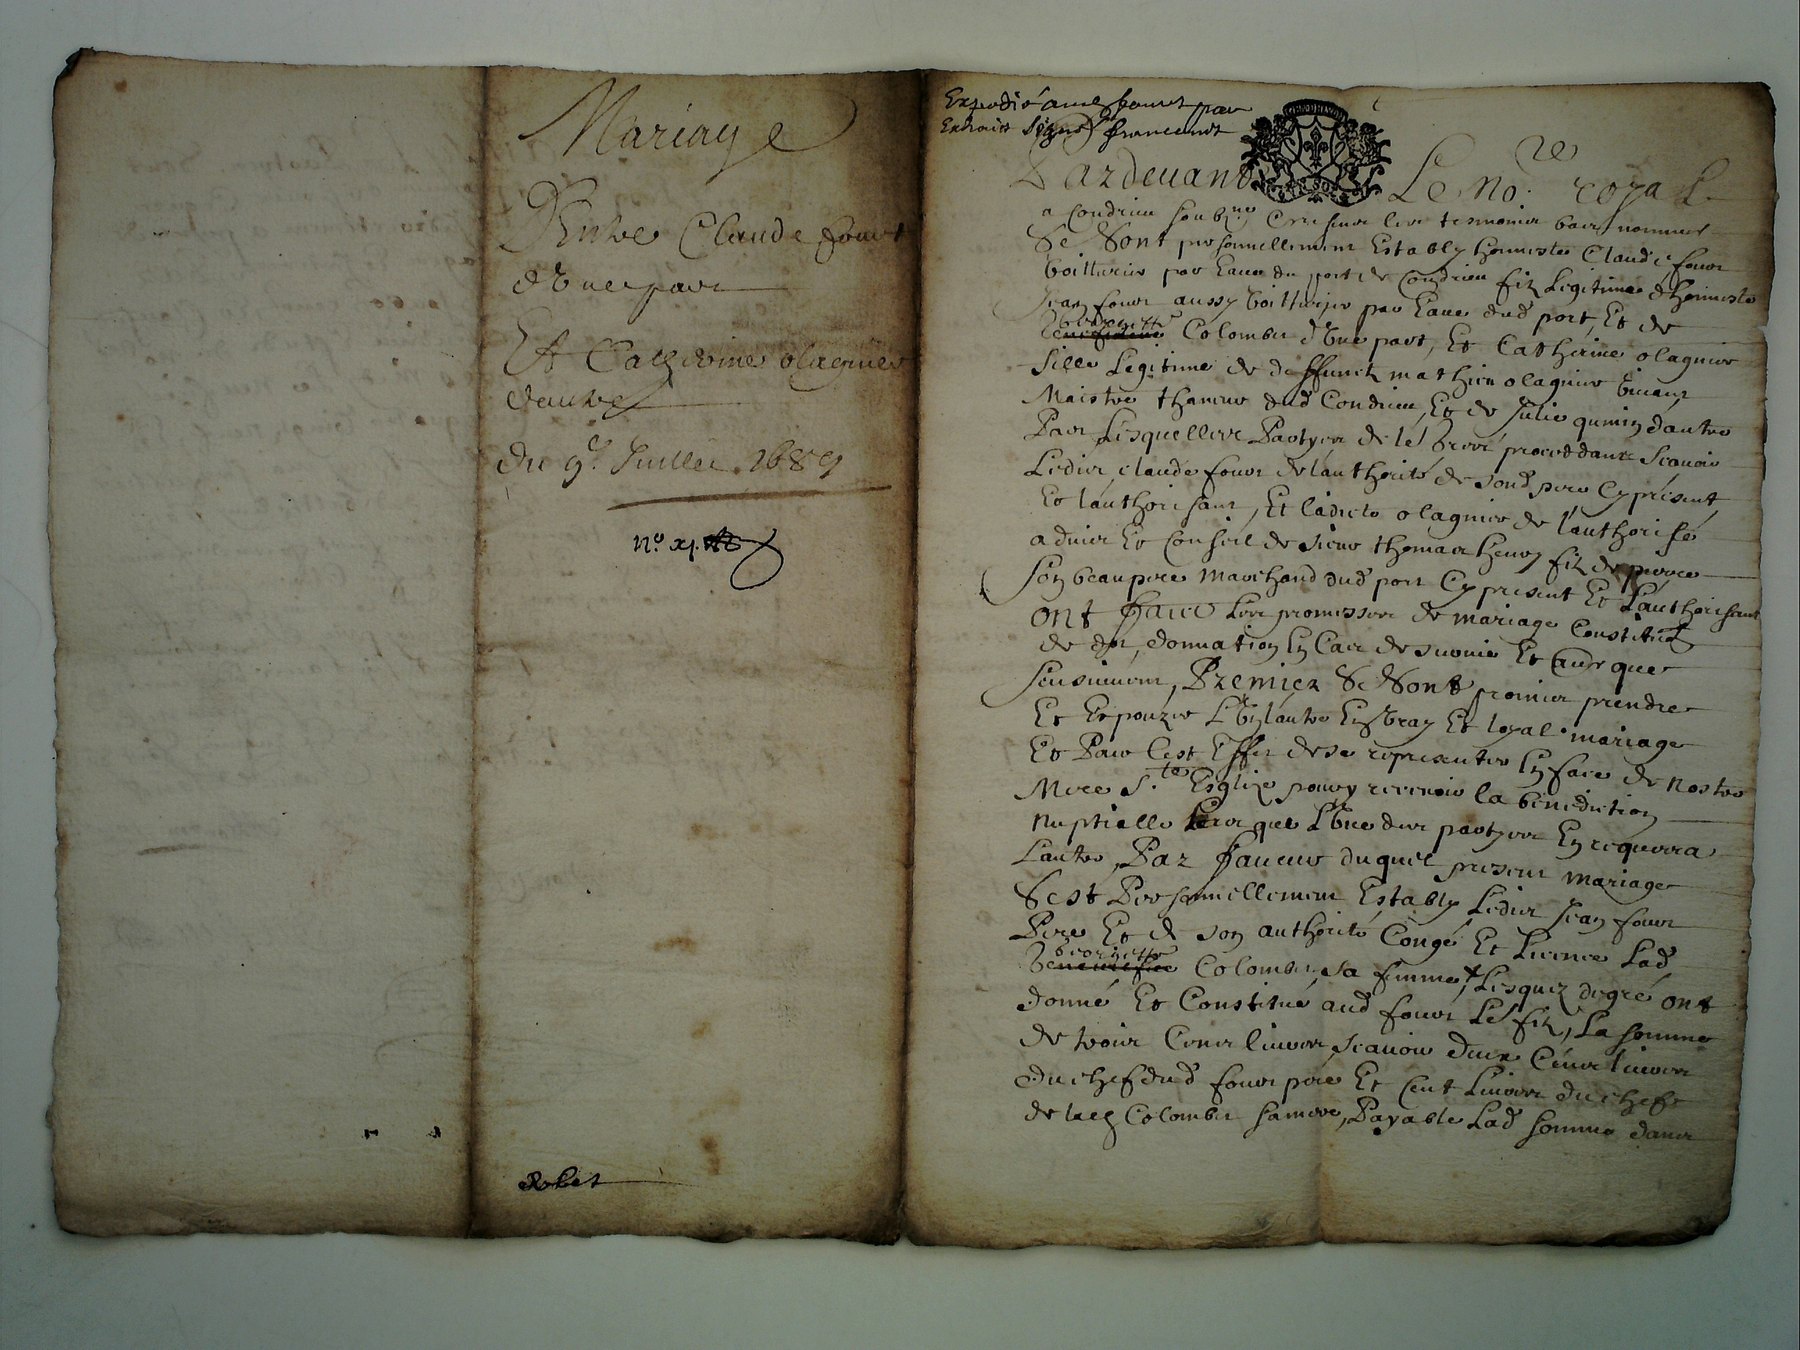 Mariage
D'Entre Claude fourt
d'Une part
Et Catherine olagnier
d'autre
du 9e Juillet 1689
No xj.
Expedié par
Extrait signé
Pardevant Le No.re royal
a Condrieu soubzné
Se Sont personnellement Estably honneste Claude four
Voitturier par Eaue du port de Condrieu filz Legitime d'honneste
Jean four aussy Voitturier par Eaue dud port, Et de
Colombet d'Une part, Et Catherine olagnier
fille Legitime de deffunct mathieu olagnier Vivant
Maistre dud Condrieu, Et de Julie d'autre
Par Lesquelles Partyes de procedantz Scauoir
Ledict claude four de lauthorité de sond pere Cy présent
Et lauthorisant, Et ladicte olagnier de l'authorité
aduis Et Conseil de sieur thomas henry filz de pierre
son beaupere Marchand dud port Cy present Et Lauthorisant
ont faict Les promesses de mariage Constituó
de dot, donnation En Cas de suruie Et aude que
sensuiuent, Premier Se Sont promis prendre
Et Espouzer L'Un lautre En Vray Et loyal mariage
Et Pour Cest Effet de se representer En face de nostre
Mere S.te Esglize pour y receuoir la bénédiction
nuptialle Lors que L'Une des partyes En requerra
Lautre, Par faueur duquel present mariage
Sest Personnellement Estably Ledict Jean four
Pere Et de son authorité Congé Et Licence Lad
Colombet sa femme, Lesquelz de gré ont
donné Et Constitué aud four Le filz, La somme
de trois Cens liures, Scauoir deux Cens liures
du chef dud four pere Et Cent Liures du chef
de lad Colombet sa mere, Payable Lad somme dans